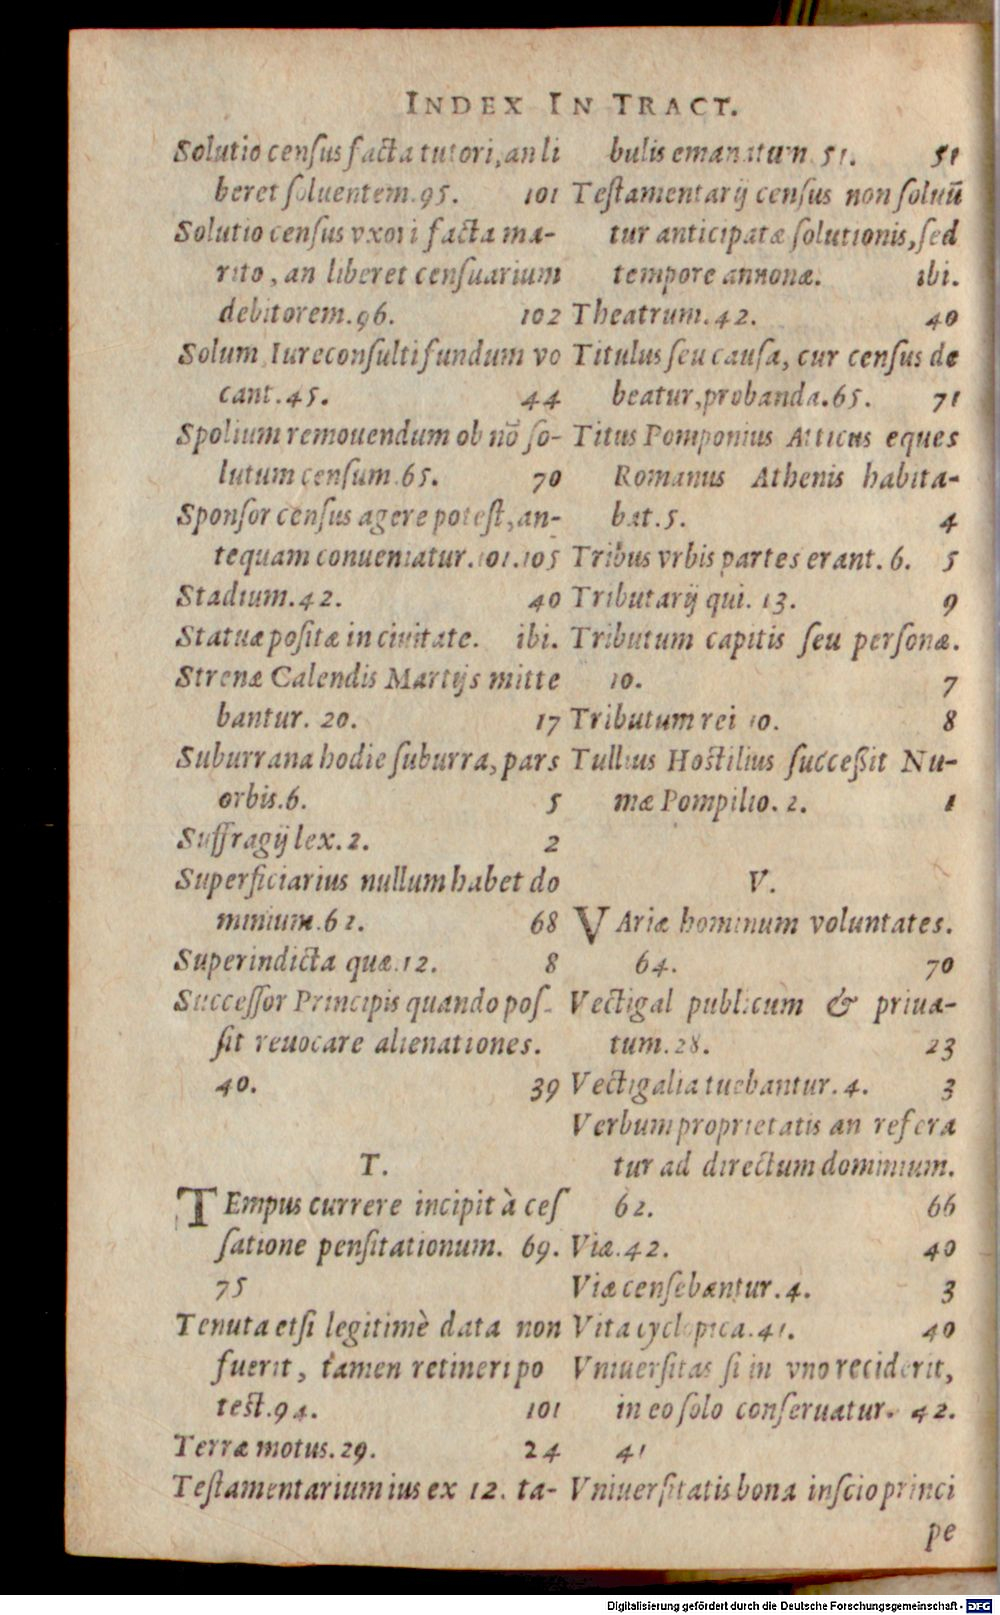 INDEX IN TRACT.
Solutio censſus facta tutori, an li
beret ſoluentem. 95. 101
Solutio cenſus vxori facta ma-
rito, an liberet cenſuarium
debitorem. 96. 102
Solum Iureconſulti fundum vo
cant. 45. 44
Spolium remouendum ob nō ſo-
lutum cenſum. 65. 70
Sponſor cenſus agere poteſt, an-
tequam conueniatur. 101. 105
Stadium. 42. 40
Statuæ poſitæ in ciuitate. ibi.
Strenæ Calendis Martijs mitte
bantur. 20. 17
Suburrana hodie ſuburra, pars
orbis. 6. 5
Suffragij lex. 2. 2
Superficiarius nullum habet do
minium. 61. 68
Superindicta quæ. 12. 8
Succeſſor Principis quando poſ-
ſit reuocare alienationes.
40. 39
T.
TEmpus currere incipit à ceſ
ſatione penſitationum. 69.
75
Tenuta etſi legitimè data non
fuerit, tamen retineri po
teſt. 94. 101
Terræ motus. 29. 24
Teſtamentarium ius ex 12. ta-
bulis emanatum. 51. 51
Teſtamentarij cenſus non ſoluū
tur anticipatæ ſolutionis, ſed
tempore annonæ. ibi.
Theatrum. 42. 40
Titulus ſeu cauſa, cur cenſus de
beatur, probanda. 65. 71
Titus Pomponius Atticus eques
Romanus Athenis habita-
bat. 5. 4
Tribus vrbis partes erant. 6. 5
Tributarij qui. 13. 9
Tributum capitis ſeu perſonæ.
10. 7
Tributum rei 10. 8
Tullius Hoſtilius ſucceßit Nu-
mæ Pompilio. 2. 1
V.
VAriæ hominum voluntates.
64. 70
Vectigal publicum & priua-
tum. 28. 23
Vectigalia tuebantur. 4. 3
Verbum proprietatis an refera
tur ad directum dominium.
62. 66
Viæ. 42. 40
Viæ cenſebantur. 4. 3
Vita cyclopica. 41. 40
Vniuerſitas ſi in vno reciderit,
in eo ſolo conſeruatur. 42.
41
Vniuerſitatis bona inſcio princi
pe
Digitalisierung gefördert durch die Deutsche Forschungsgemeinschaft - DFG